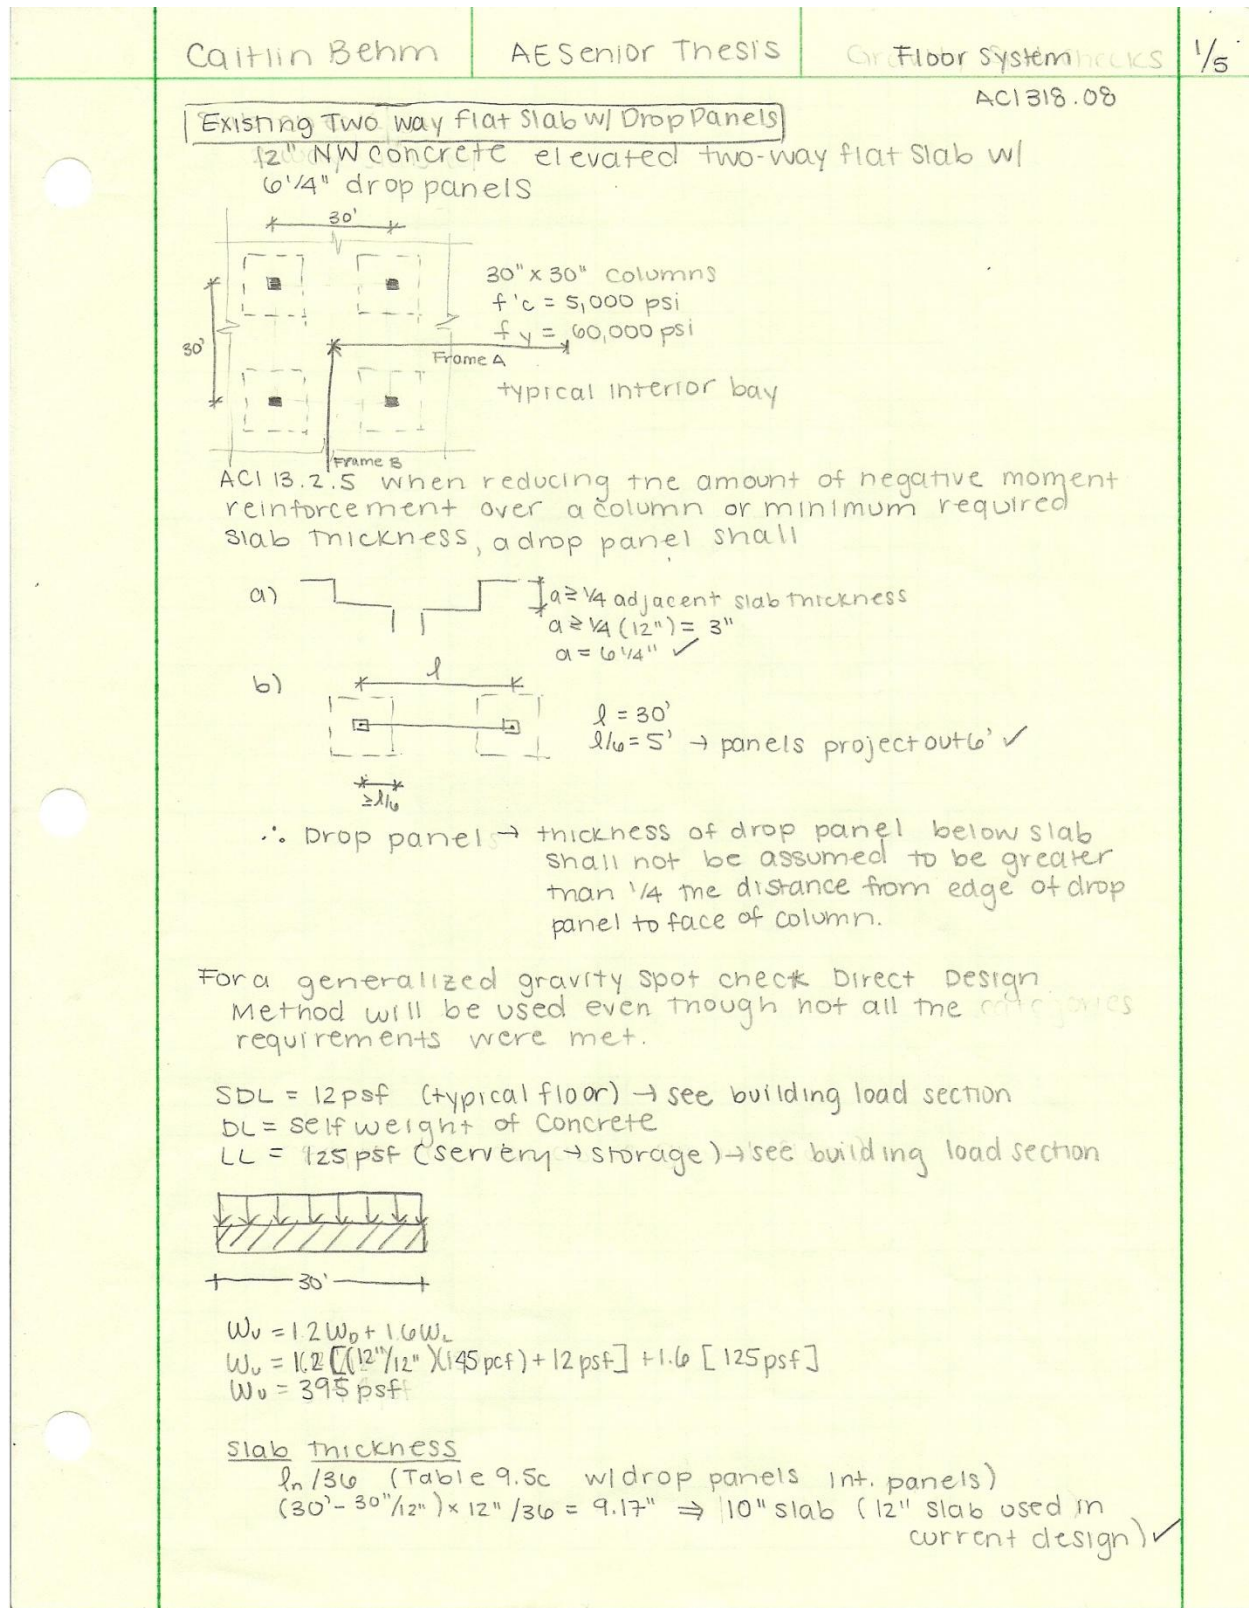 Caitlin Behm
AE Senior Thesis
Floor System
1/5
ACI 318.08
Existing Two way flat slab w/ Drop Panels
12" NW concrete elevated two-way flat slab w/
6 1/4" drop panels
30'
30" x 30" columns
f'c = 5,000 psi
fy = 60,000 psi
30'
Frame A
typical interior bay
Frame B
ACI 13.2.5 when reducing the amount of negative moment
reinforcement over a column or minimum required
slab thickness, a drop panel shall
a)
a ≥ 1/4 adjacent slab thickness
a ≥ 1/4 (12") = 3"
a = 6 1/4" ✓
b)
l
l = 30'
l/6 = 5' → panels project out 6' ✓
≥ l/6
∴ Drop panel → thickness of drop panel below slab
shall not be assumed to be greater
than 1/4 the distance from edge of drop
panel to face of column.
For a generalized gravity spot check Direct Design
Method will be used even though not all the
requirements were met.
SDL = 12 psf (typical floor) → see building load section
DL = self weight of concrete
LL = 125 psf (servery → storage) → see building load section
30'
Wu = 1.2 WD + 1.6 WL
Wu = 1.2 [(12"/12")(145 pcf) + 12 psf] + 1.6 [125 psf]
Wu = 395 psf
Slab thickness
ln/36 (Table 9.5c w/ drop panels int. panels)
(30' - 30"/12") x 12"/36 = 9.17" ⇒ 10" slab (12" slab used in
current design) ✓